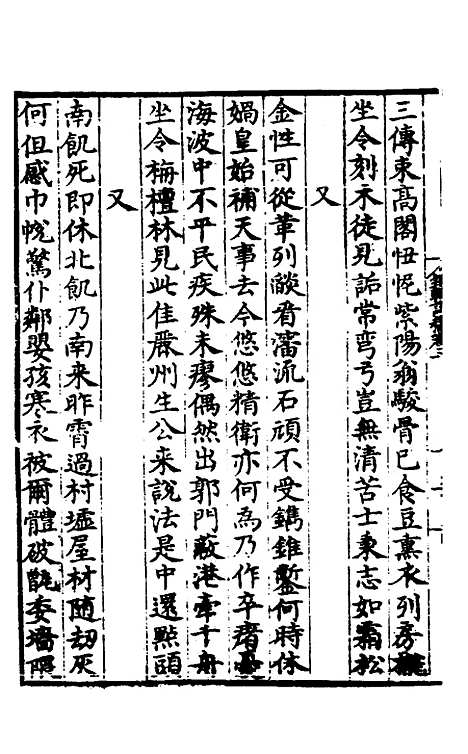 三傳束高閣忸怩紫陽翁駿骨已食豆熏衣列房櫳
坐令刻木徒見詬常彎弓豈無清苦士秉志如霜松
又
金性可從革列燄脊瀋流石頑不受鐫錐鑿何時休
媧皇始補天事去今悠悠精衛亦何為乃作卒瘏
海波中不平民疾殊未瘳偶然出郭門蔽港牽千舟
坐令栴檀林見此佳麗州生公来說法是中還點頭
又
南飢死即休北飢乃南来昨霄過村墟屋材随劫灰
何但感巾帨驚仆鄰嬰孩寒衣被爾體破甑委墻隈